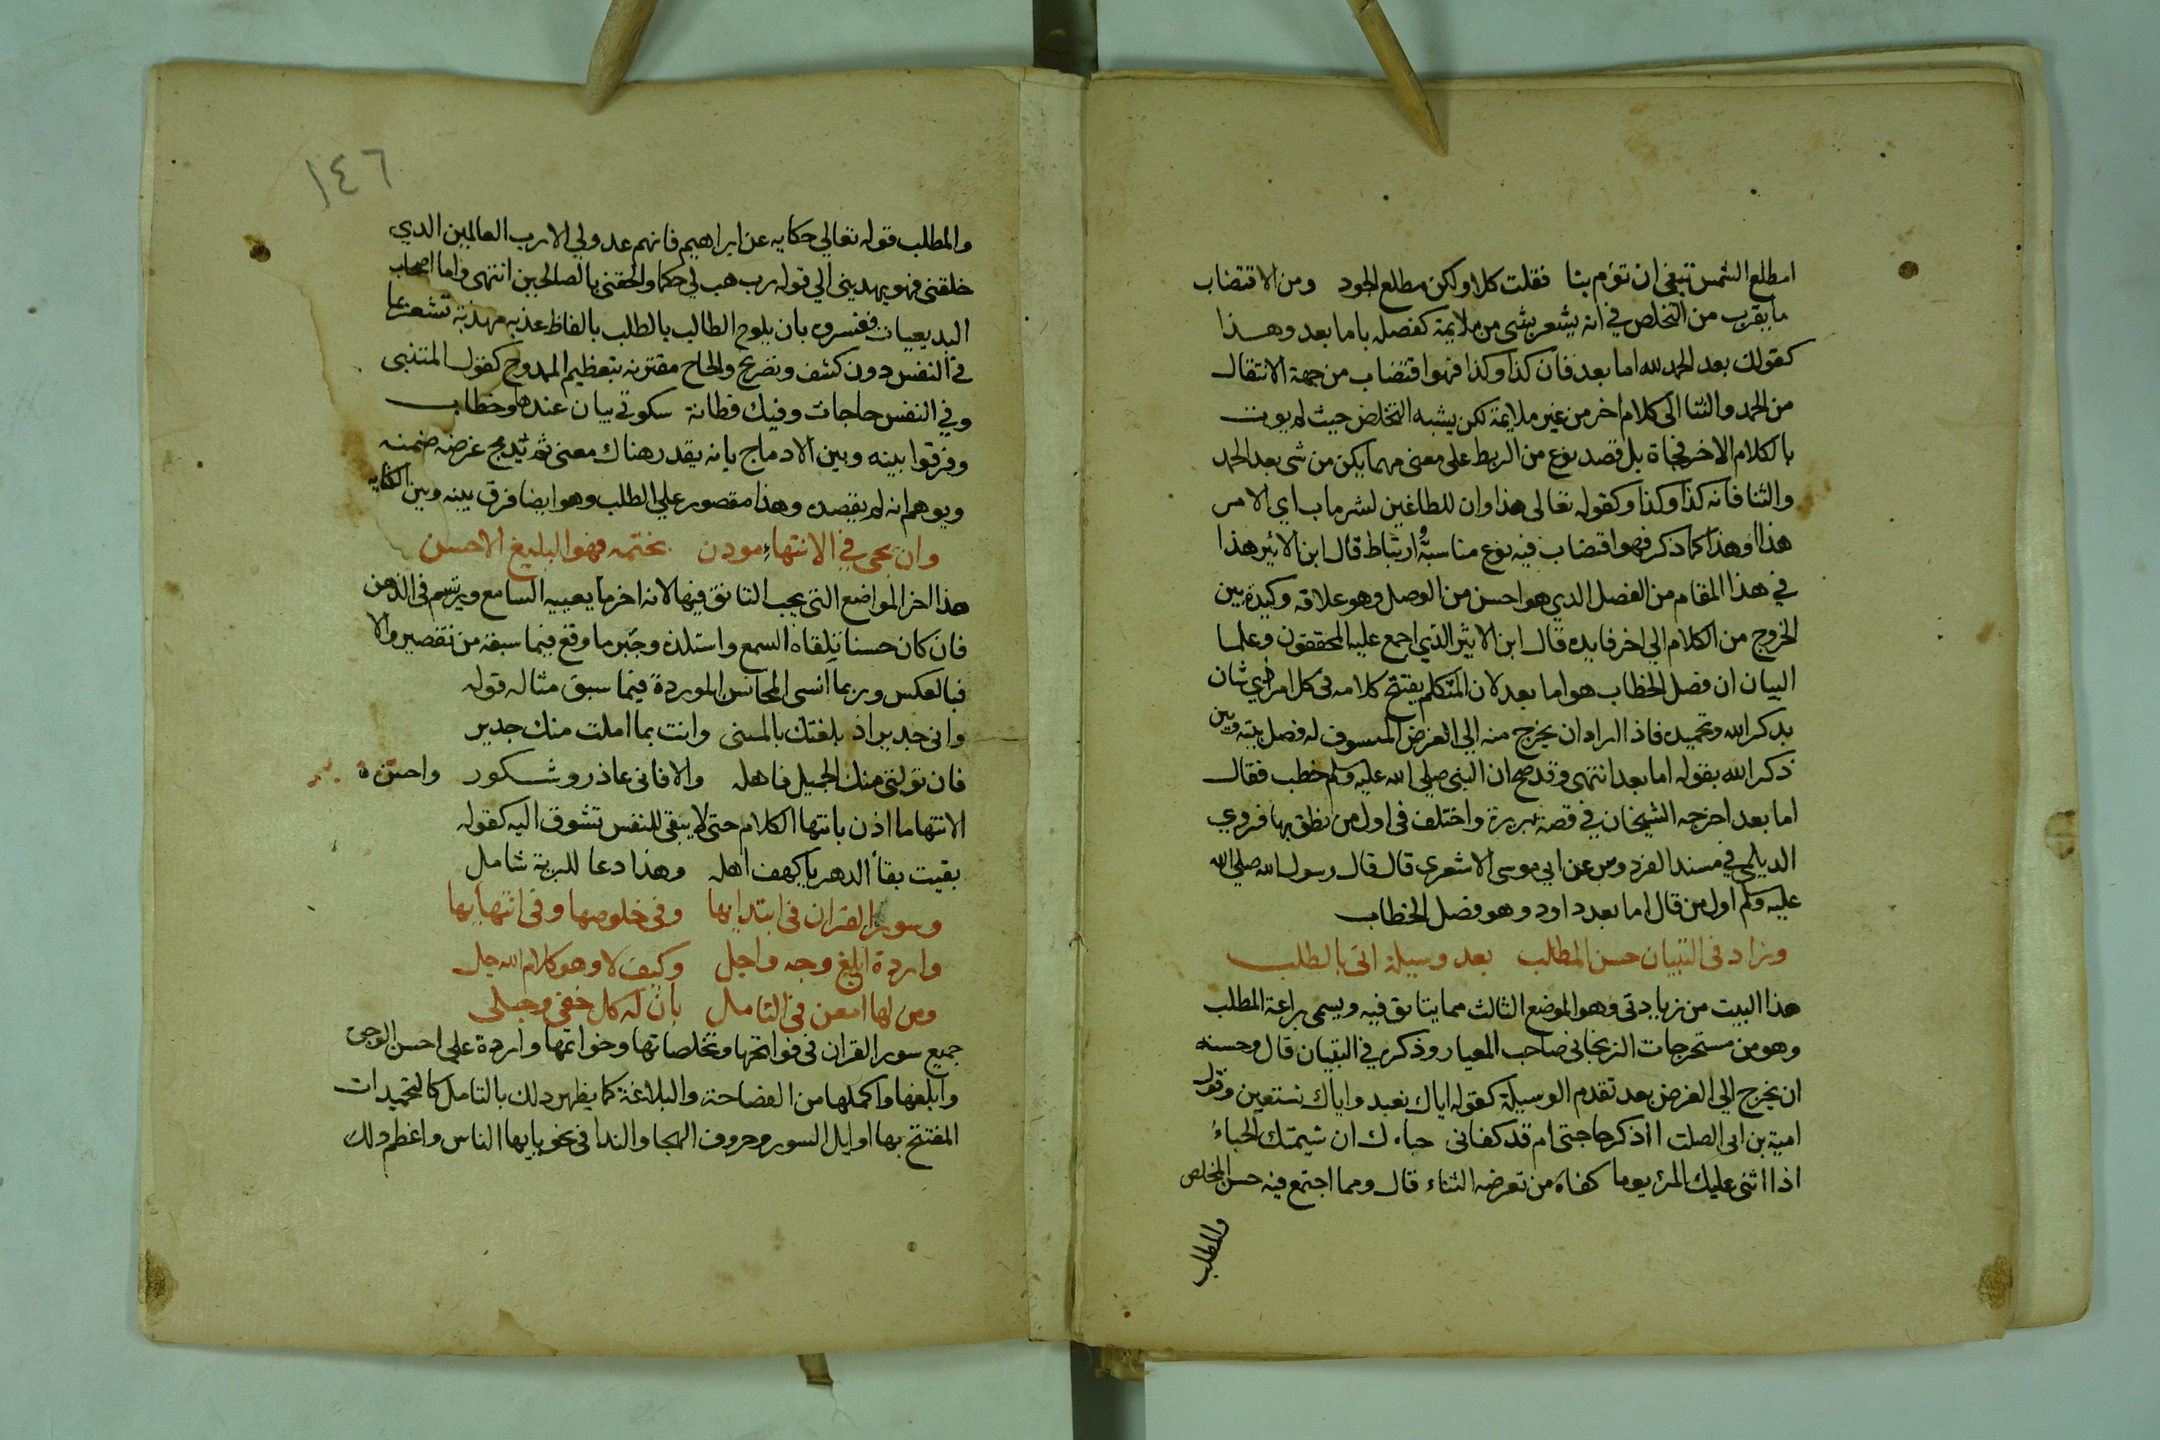 امطلع الشمس تبغى ان تؤم بنا فقلت كلا ولكن مطلع الجود ومن الاقتضاب
ما يقرب من التخلص في انه يشعر بشى من ملايمة كفصله باما بعد وهذا
كقولك بعد الحمد لله اما بعد فان كذا وكذا فهو اقتضاب من جهة الانتقال
من الحمد والثنا الى كلام اخر من غير ملايمة لكن يشبه التخلص حيث لم يوت
بالكلام الاخر فجاة بل قصد نوع من الربط على معنى مهما يكن من شى بعد الحمد
والثنا فانه كذا وكذا وكقوله تعالى هذا وان للطاغين لشر ماب اي الامر
هذا او هذا كما ذكر فهو اقتضاب فيه نوع مناسبة وارتباط قال ابن الاثير هذا
في هذا المقام من الفصل الدي هو احسن من الوصل وهو علاقه وكيدة بين
الخروج من الكلام الي اخر فايده قال ابن الاثير الذي اجمع عليه المحققون وعلما
البيان ان فصل الخطاب هو اما بعد لان المتكلم يفتتح كلامه فى كل امر ذي شان
بدكر الله وتحميده فاذا اراد ان يخرج منه الي الغرض المسوق له فصل بينه وبين
ذكر الله بقوله اما بعد انتهى وقد صح ان النبي صلي الله عليه وسلم خطب فقال
اما بعد اخرجه الشيخان في قصة بريرة واختلف فى اول من نطق بها فروي
الديلمي في مسند الفردوس عن ابي موسى الاشعرى قال قال رسول الله صلي الله
عليه وسلم اول من قال اما بعد داود وهو فصل الخطاب
وزاد فى التبيان حسن المطلب بعد وسيلة اتى بالطلب
هذا البيت من زيادتى وهو الموضع الثالث مما يتانق فيه ويسمى براعة المطلب
وهو من مستخرجات الزنجاني صاحب المعيار وذكره في التبيان قال وحسنه
ان يخرج الي الغرض بعد تقدم الوسيلة كقوله اياك نعبد واياك نستعين وقول
امية بن ابي الصلت ااذكر حاجتى ام قد كفانى حياءك ان شيمتك الحياءُ
اذا اثنى عليك المرء يوما كفاه من تعرضه الثناء قال ومما اجتمع فيه حسن التخلص
والمطلب
١٤٦
والمطلب قوله تعالي حكايه عن ابراهيم فانهم عدو لي الا رب العالمين الدي
خلقنى فهو يهدينى الي قوله رب هب لي حكما والحقنى بالصالحين انتهى واما اصحاب
البديعيات ففسروه بان يلوح الطالب بالطلب بالفاظ عذبه مهذبة تشعر بما
في النفس دون كشف وتضرع والحاح مقترنه بتعظيم الممدوح كقول المتنبى
وفي النفس حاجات وفيك فطانة سكوتي بيان عندها وخطاب
وفرقوا بينه وبين الادماج بانه يقدر هناك معنى ثم يدمج غرضه ضمنه
ويوهم انه لم يقصده وهذا مقصور علي الطلب وهو ايضا فرق بينه وبين الكنايه
وان يجى في الانتهاء موذن بختمه فهو البليغ الاحسن
هذا اخر المواضع التى يجب التانق فيها لانه اخر ما يعييه السامع ويرتسم فى الذهن
فان كان حسنا تلقاه السمع واستلذه وجبر ما وقع فيما سبقه من تقصير والا
فبالعكس وربما انسى المحاسن الموردة فيما سبق مثاله قوله
وانى جدير اذ بلغتك بالمنى وانت بما املت منك جدير
فان تولنى منك الجميل فاهله والا فانى عاذر وشكور واحسن
الانتها ما اذن بانتها الكلام حتى لا يبقى للنفس تشوق اليه كقوله
بقيت بقاء الدهر يا كهف اهله وهذا دعا للبرية شامل
وسور القران فى ابتدايها وفى خلوصها وفى انتهايها
واردة ابلغ وجه واجل وكيف لا وهو كلام الله جل
ومن لها امعن فى التامل بان له كل خفى وجلى
جميع سور القران فى فواتحها وتخلصاتها وخواتمها واردة على احسن الوجى
وابلغها واكملها من الفصاحة والبلاغة كما يظهر دلك بالتامل كالتحميدات
المفتتح بها اوايل السور وحروف الهجا والندا فى نحو يا يها الناس واعظم ذلك